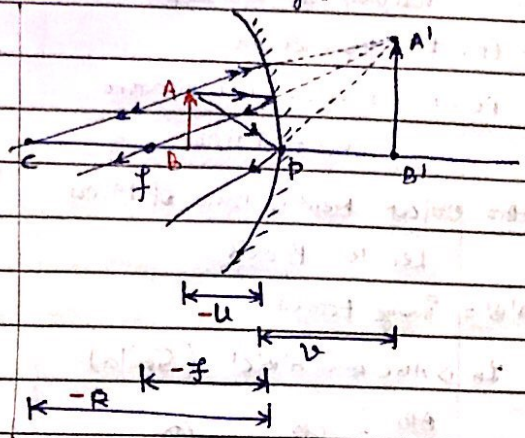 A'
A
C
f
B
P
B'
-u
v
-f
-R